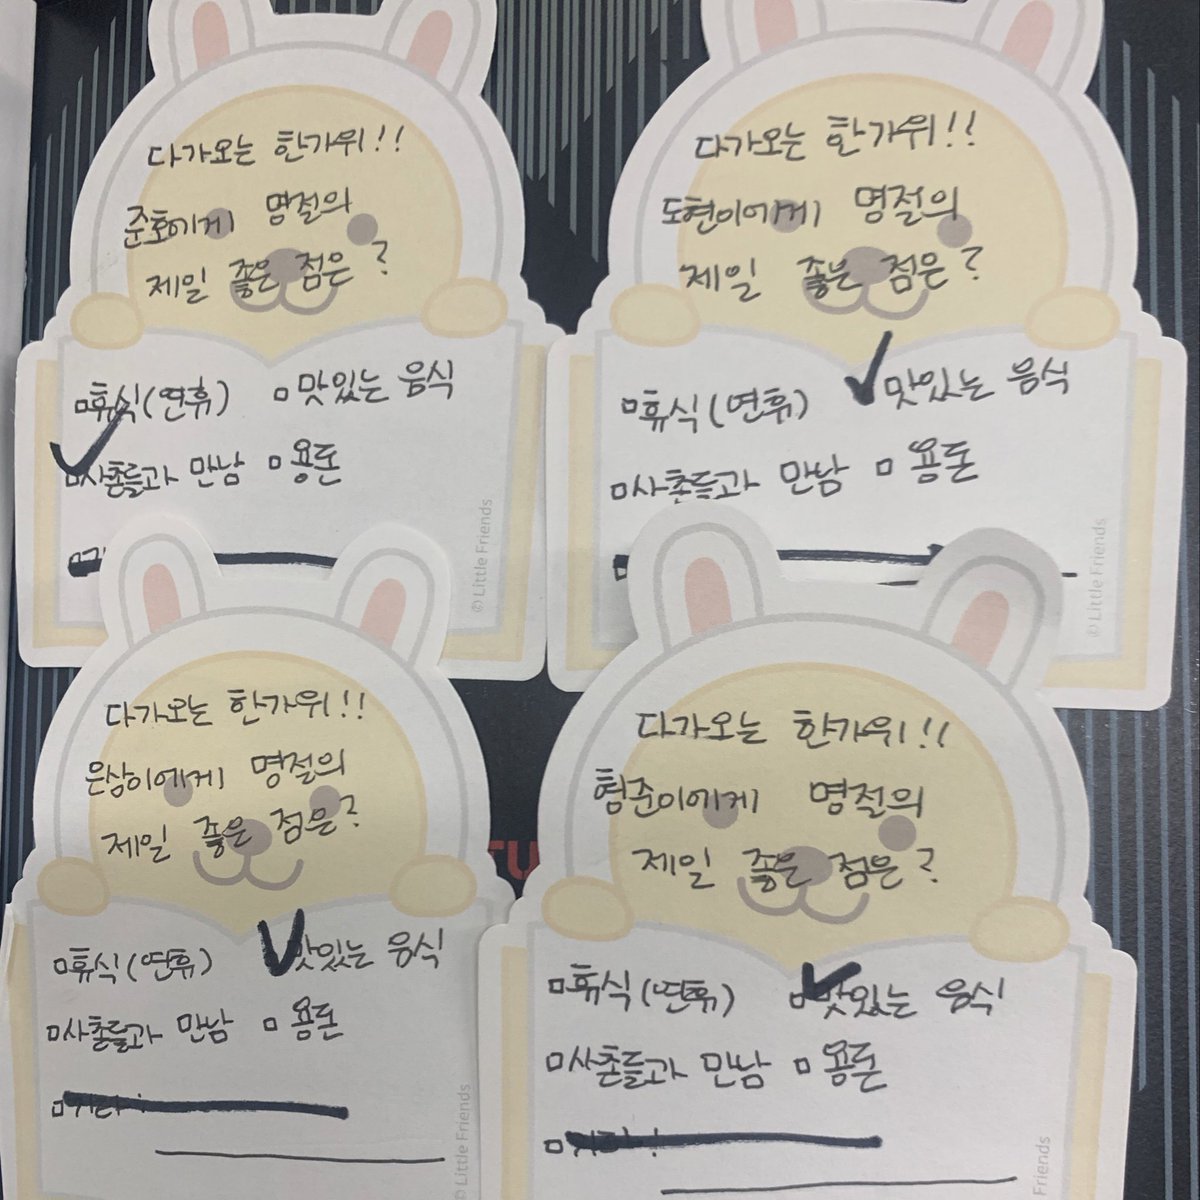 다가오는 한가위!!
준호에게 명절의
제일 좋은 점은?
휴식(연휴) 맛있는 음식
사촌들과 만남 용돈
© Little Friends
다가오는 한가위!!
도현이에게 명절의
제일 좋은 점은?
휴식(연휴) 맛있는 음식
사촌들과 만남 용돈
© Little Friends
다가오는 한가위!!
은상이에게 명절의
제일 좋은 점은?
휴식(연휴) 맛있는 음식
사촌들과 만남 용돈
기타:
© Little Friends
다가오는 한가위!!
형준이에게 명절의
제일 좋은 점은?
휴식(연휴) 맛있는 음식
사촌들과 만남 용돈
기타:
Friends